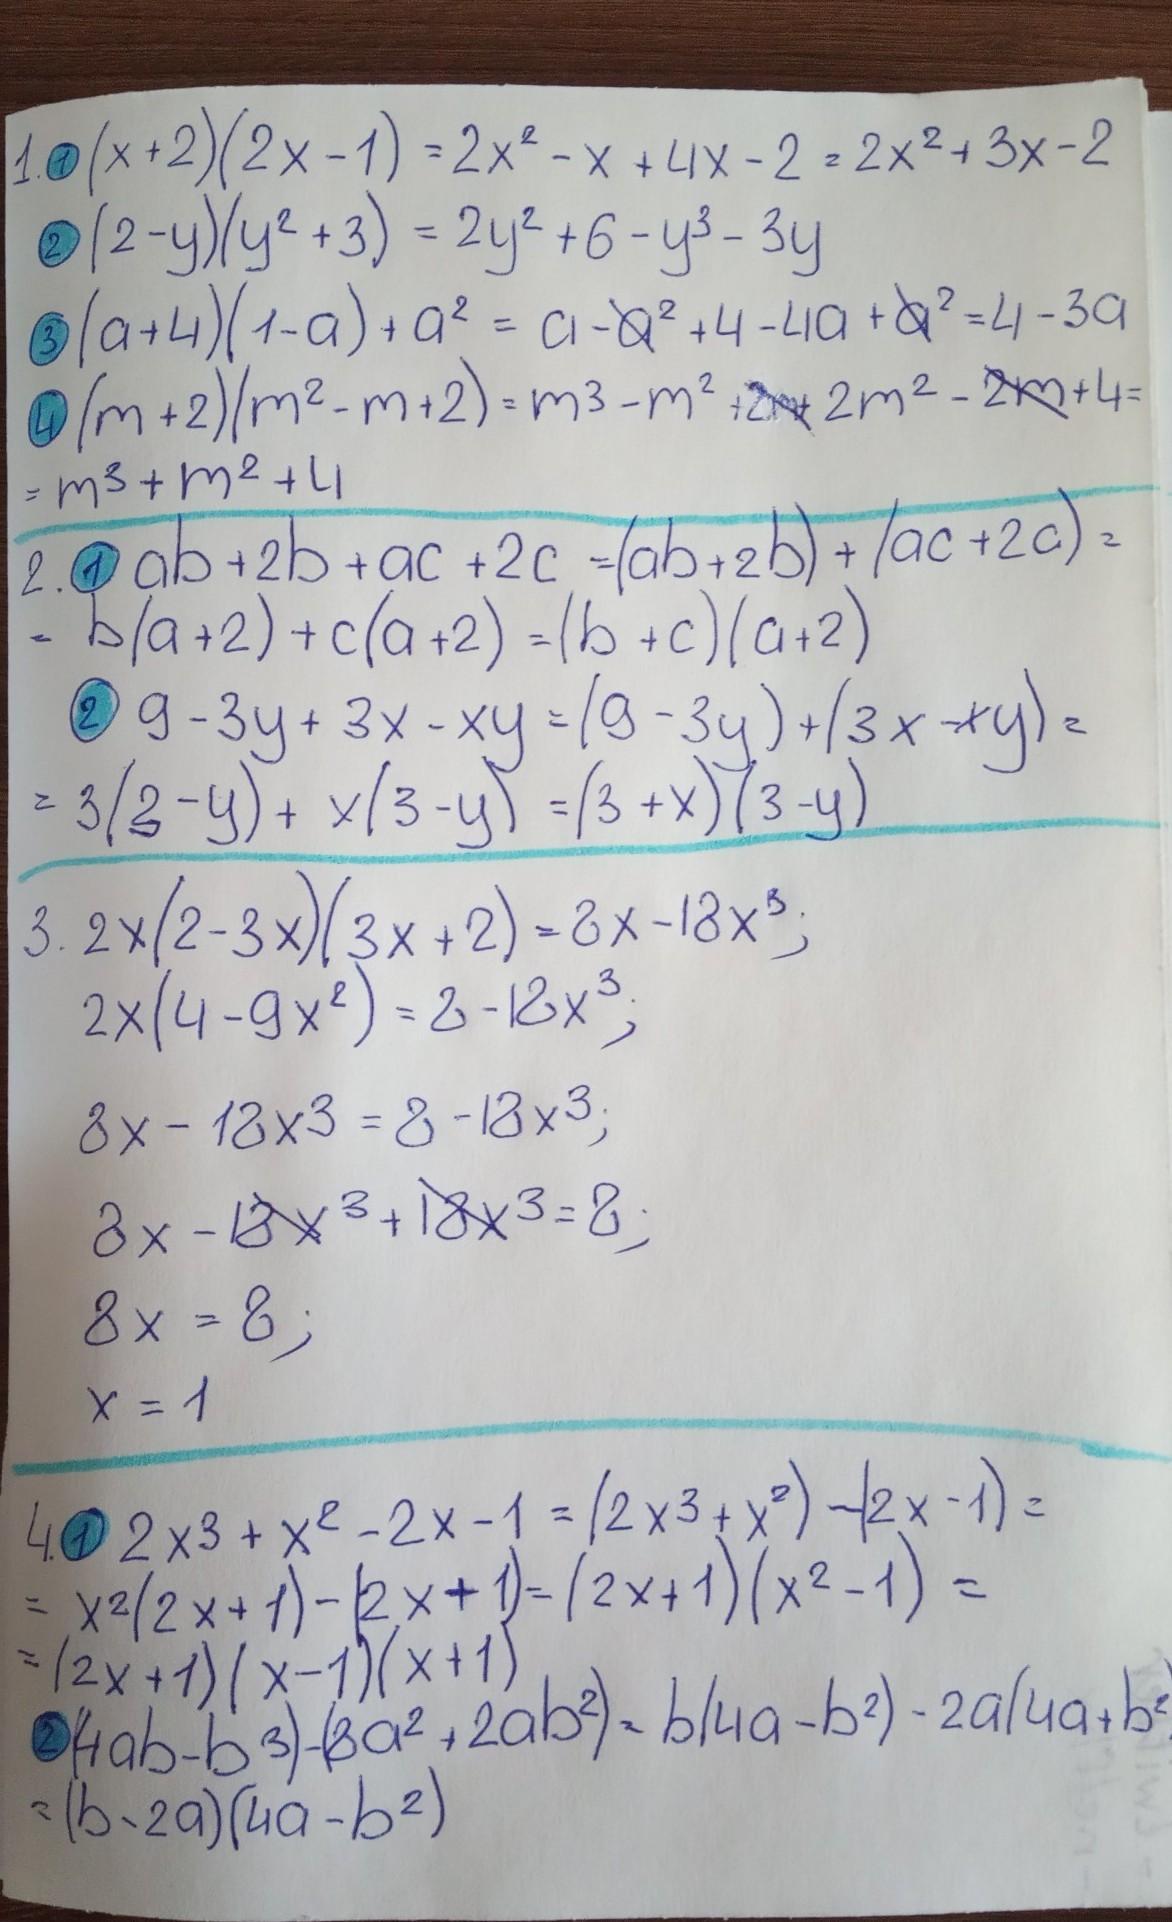 1. 1 (x+2)(2x-1) = 2x² - x + 4x - 2 = 2x² + 3x - 2
2 (2-y)(y²+3) = 2y² + 6 - y³ - 3y
3 (a+4)(1-a) + a² = a - a² + 4 - 4a + a² = 4 - 3a
4 (m+2)(m²-m+2) = m³ - m² + 2m + 2m² - 2m + 4 =
= m³ + m² + 4
2. 1 ab + 2b + ac + 2c = (ab+2b) + (ac+2c) =
= b(a+2) + c(a+2) = (b+c)(a+2)
2 9 - 3y + 3x - xy = (9-3y) + (3x-xy) =
= 3(3-y) + x(3-y) = (3+x)(3-y)
3. 2x(2-3x)(3x+2) = 8x - 18x³;
2x(4-9x²) = 8 - 18x³;
8x - 18x³ = 8 - 18x³;
8x - 18x³ + 18x³ = 8;
8x = 8;
x = 1
4. 1 2x³ + x² - 2x - 1 = (2x³+x²) - (2x-1) =
= x²(2x+1) - (2x+1) = (2x+1)(x²-1) =
= (2x+1)(x-1)(x+1)
2 (4ab-b³) - (8a²+2ab²) = b(4a-b²) - 2a(4a+b²
= (b-2a)(4a-b²)